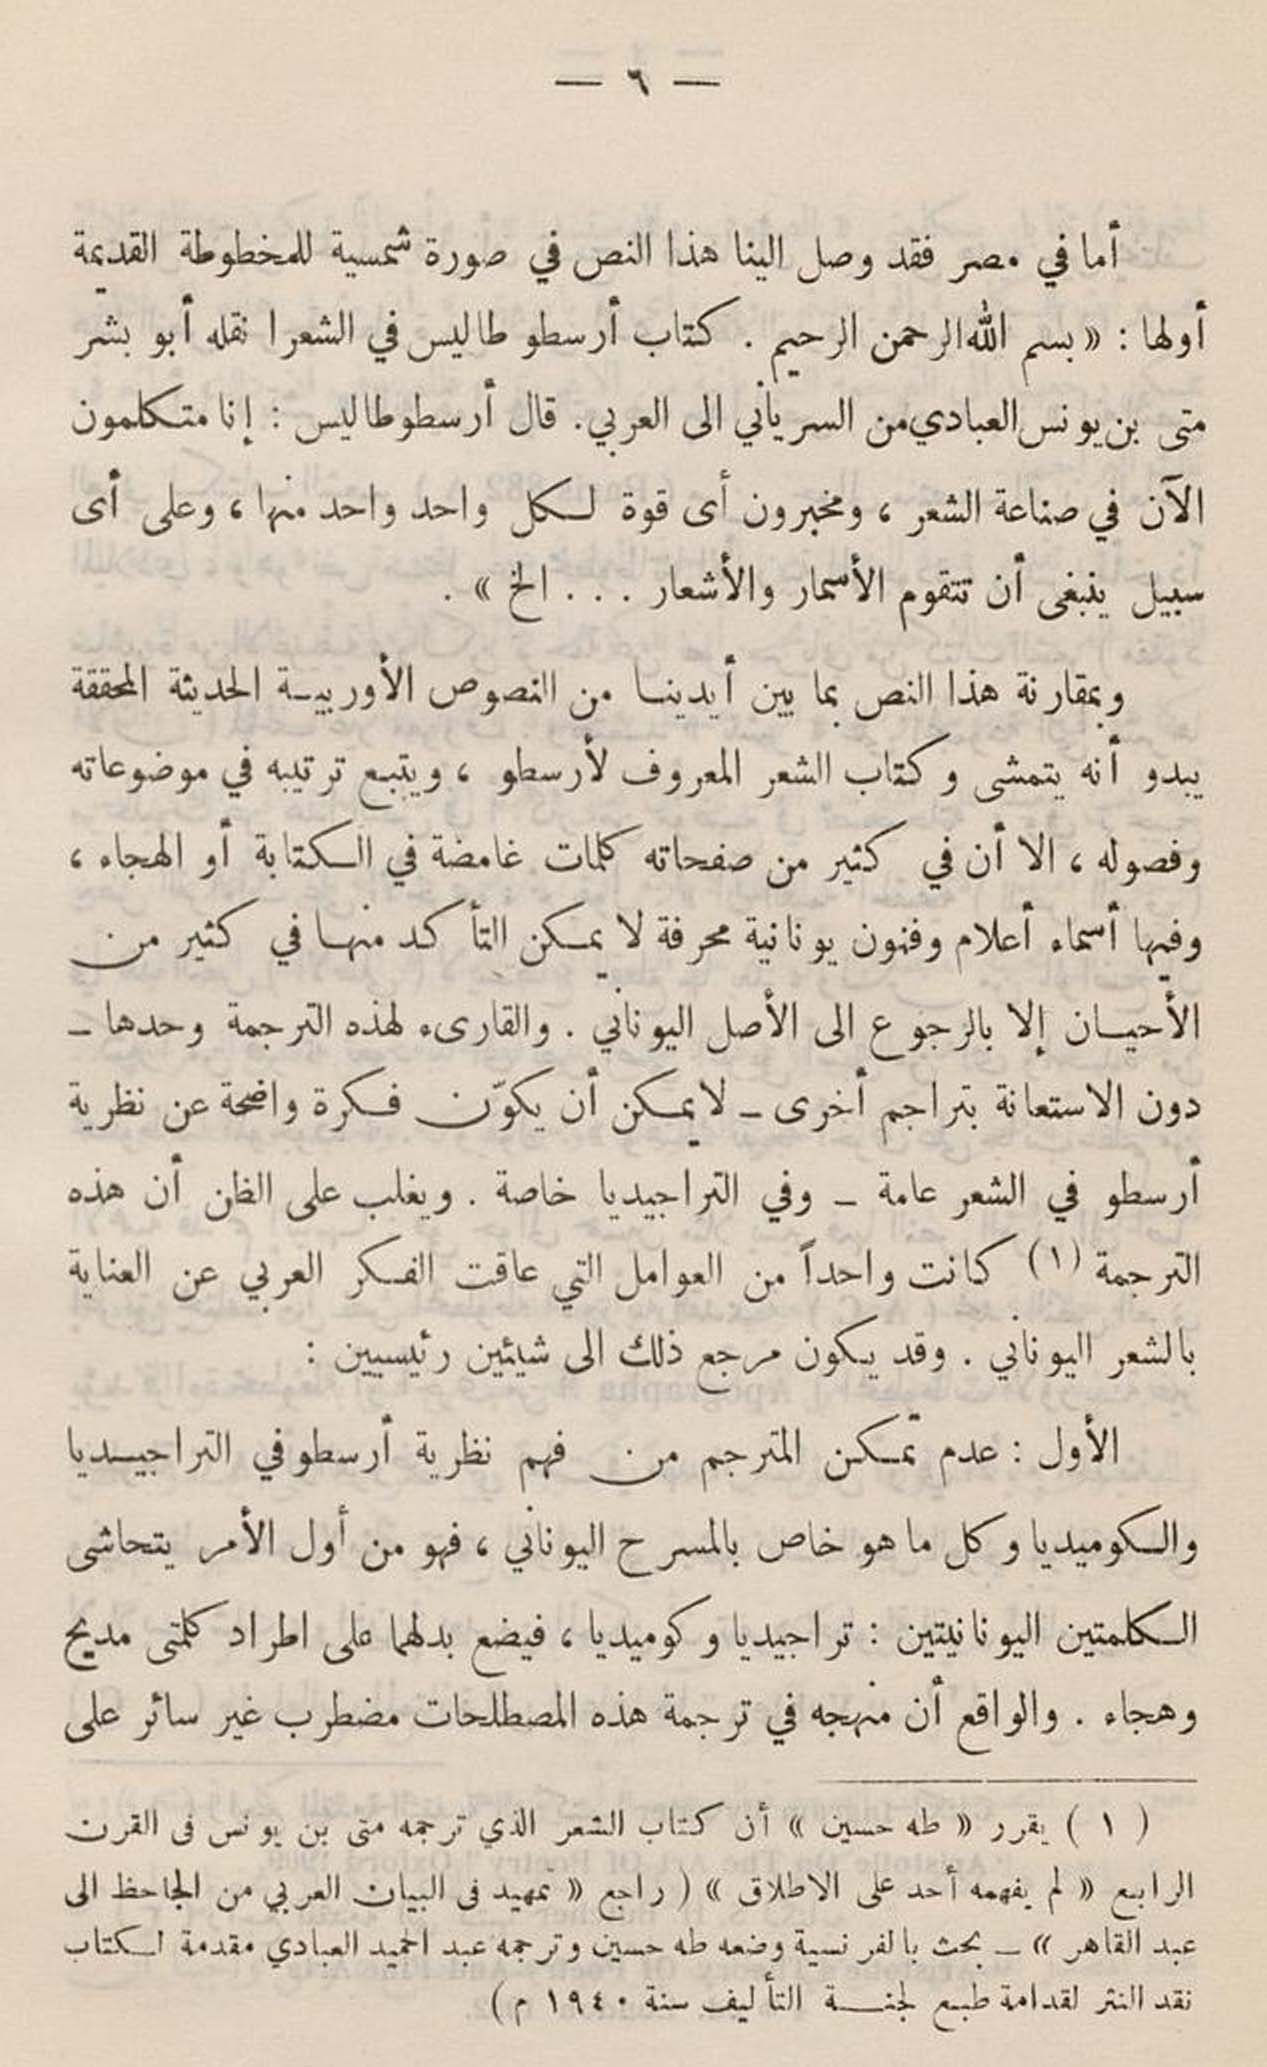 — ٦ —
أما في مصر فقد وصل الينا هذا النص في صورة شمسية للمخطوطة القديمة
أولها : « بسم الله الرحمن الرحيم . كتاب أرسطو طاليس في الشعرا نقله أبو بشر
متى بن يونس العبادي من السرياني الى العربي . قال أرسطوطاليس : إنا متكلمون
الآن في صناعة الشعر ، ومخبرون أى قوة لكل واحد واحد منها ، وعلى أى
سبيل ينبغى أن تتقوم الأسمار والأشعار . . . الخ » .
وبمقارنة هذا النص بما بين أيدينا من النصوص الأوربية الحديثة المحققة
يبدو أنه يتمشى وكتاب الشعر المعروف لأرسطو ، ويتبع ترتيبه في موضوعاته
وفصوله ، الا أن في كثير من صفحاته كلمات غامضة في الكتابة أو الهجاء ،
وفيها أسماء أعلام وفنون يونانية محرفة لا يمكن التأكد منها في كثير من
الأحيان إلا بالرجوع الى الأصل اليوناني . والقارىء لهذه الترجمة وحدها –
دون الاستعانة بتراجم أخرى – لا يمكن أن يكوّن فكرة واضحة عن نظرية
أرسطو في الشعر عامة – وفي التراجيديا خاصة . ويغلب على الظن أن هذه
الترجمة (١) كانت واحداً من العوامل التي عاقت الفكر العربي عن العناية
بالشعر اليوناني . وقد يكون مرجع ذلك الى شيئين رئيسيين :
الأول : عدم تمكن المترجم من فهم نظرية أرسطو في التراجيديا
والكوميديا وكل ما هو خاص بالمسرح اليوناني ، فهو من أول الأمر يتحاشى
الكلمتين اليونانيتين : تراجيديا وكوميديا ، فيضع بدلهما على اطراد كلمتى مديح
وهجاء . والواقع أن منهجه في ترجمة هذه المصطلحات مضطرب غير سائر على
( ١ ) يقرر « طه حسين » أن كتاب الشعر الذي ترجمه متى بن يونس فى القرن
الرابع « لم يفهمه أحد على الاطلاق » ( راجع « تمهيد فى البيان العربي من الجاحظ الى
عبد القاهر » – بحث بالفرنسية وضعه طه حسين وترجمه عبد الحميد العبادي مقدمة لكتاب
نقد النثر لقدامة طبع لجنة التأليف سنة ١٩٤٠ م )